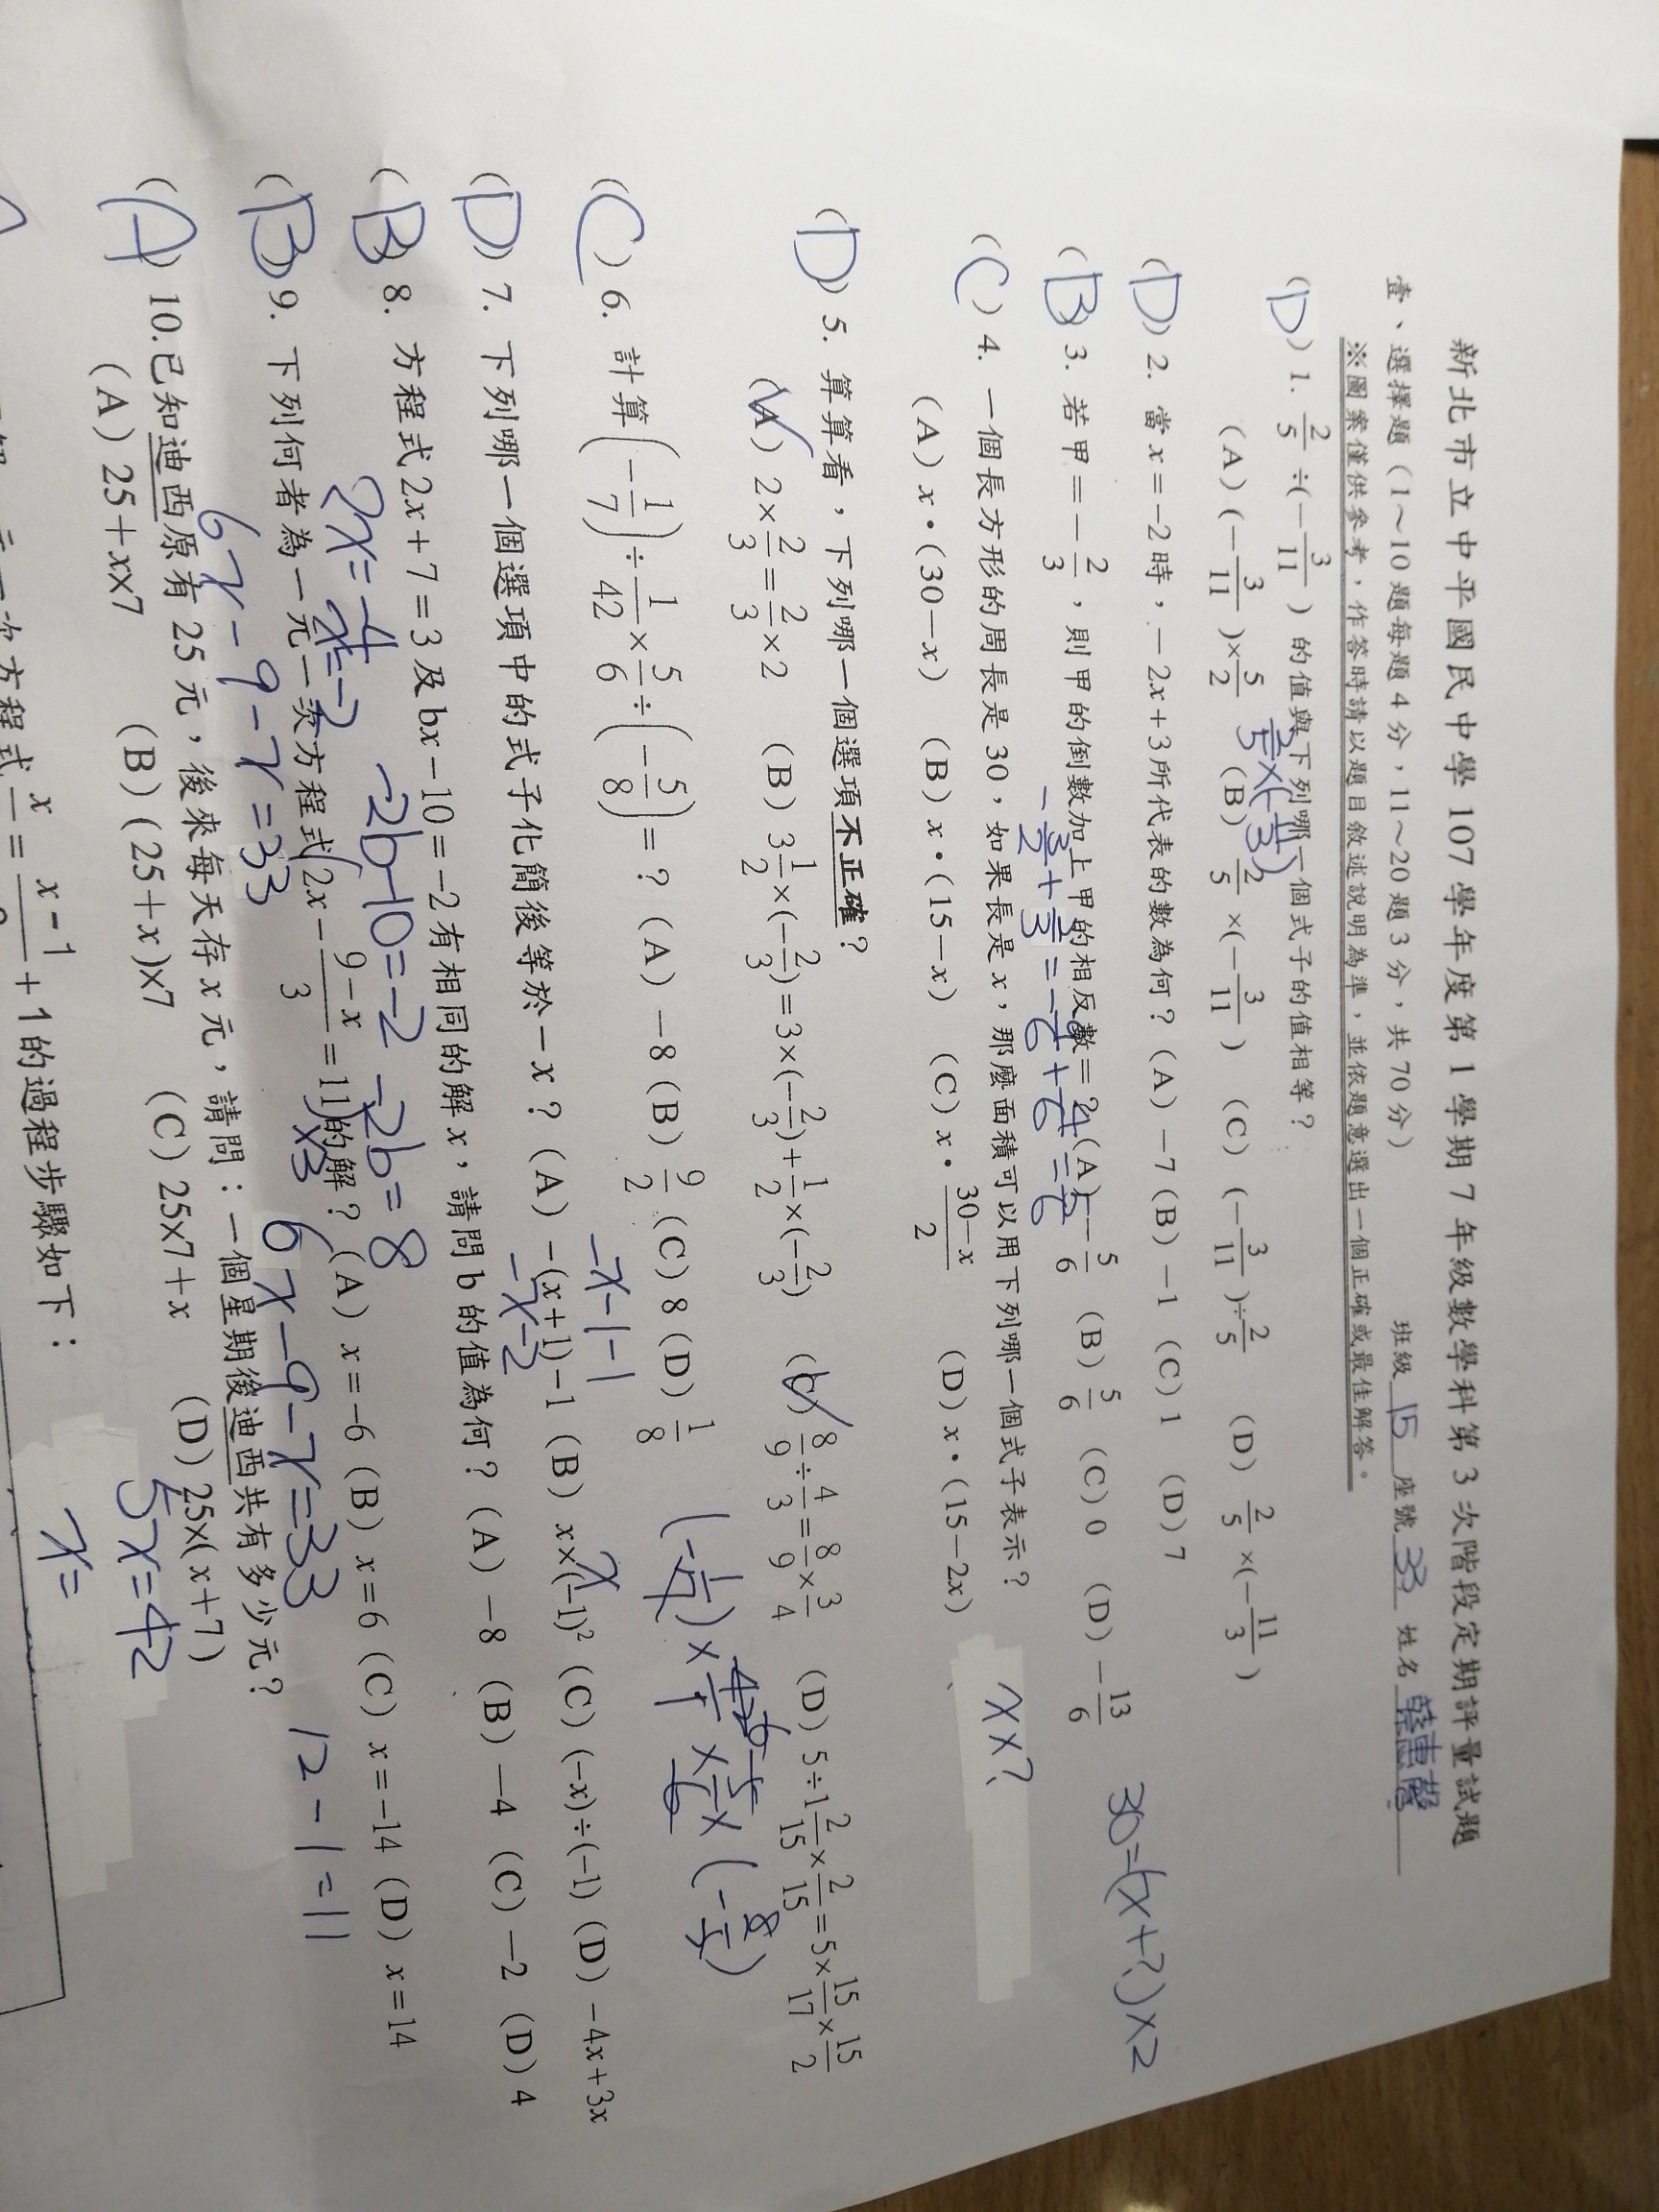 新北市立中平國民中學107學年度第1學期7年級數學科第3次階段定期評量試題
壹、選擇題（1～10題每題4分，11～20題3分，共70分） 班級 15 座號 33 姓名
※圖案僅供參考，作答時請以題目敘述說明為準，並依題意選出一個正確或最佳解答。
(D) 1. 2/5 ÷(−3/11) 的值與下列哪一個式子的值相等？
2/5×(−11/3)
(A) (−3/11)×5/2 (B) 2/5 ×(−3/11) (C) (−3/11)÷2/5 (D) 2/5 ×(−11/3)
(D) 2. 當 x=−2時，−2x+3所代表的數為何？(A) −7 (B) −1 (C) 1 (D) 7
30=(x+?)×2
(B) 3. 若甲=−2/3，則甲的倒數加上甲的相反數=？(A) −5/6 (B) 5/6 (C) 0 (D) −13/6
(C) 4. 一個長方形的周長是 30，如果長是 x，那麼面積可以用下列哪一個式子表示？
x×?
(A) x•(30−x) (B) x•(15−x) (C) x•(30−x)/2 (D) x•(15−2x)
(D) 5. 算算看，下列哪一個選項不正確？
(A) 2×2/3=2/3×2 (B) 3 1/2×(−2/3)=3×(−2/3)+1/2×(−2/3) (C) 8/9÷4/3=8/9×3/4 (D) 5÷1 2/15×2/15=5×15/17×15/2
(C) 6. 計算(−1/7)÷1/42×5/6÷(−5/8)=？ (A) −8 (B) 9/2 (C) 8 (D) 1/8
(−1/7)×42/1×5/6×(−8/5)
−x−1−1
−x−2
x
(D) 7. 下列哪一個選項中的式子化簡後等於−x？ (A) −(x+1)−1 (B) x×(−1)² (C) (−x)÷(−1) (D) −4x+3x
(B) 8. 方程式2x+7=3及bx−10=−2有相同的解 x，請問 b 的值為何？ (A) −8 (B) −4 (C) −2 (D) 4
2x=−4 x=−2 −2b−10=−2 −2b=8
(B) 9. 下列何者為一元一次方程式(2x−(9−x)/3=11)×3的解？ (A) x=−6 (B) x=6 (C) x=−14 (D) x=14
6x−9−x=33 6x−9−x=33 12−1=11
(A) 10.已知迪西原有 25 元，後來每天存 x 元，請問：一個星期後迪西共有多少元？
5x=42
x=
(A) 25+x×7 (B) (25+x)×7 (C) 25×7+x (D) 25×(x+7)
次方程式 x = x−1 +1的過程步驟如下：